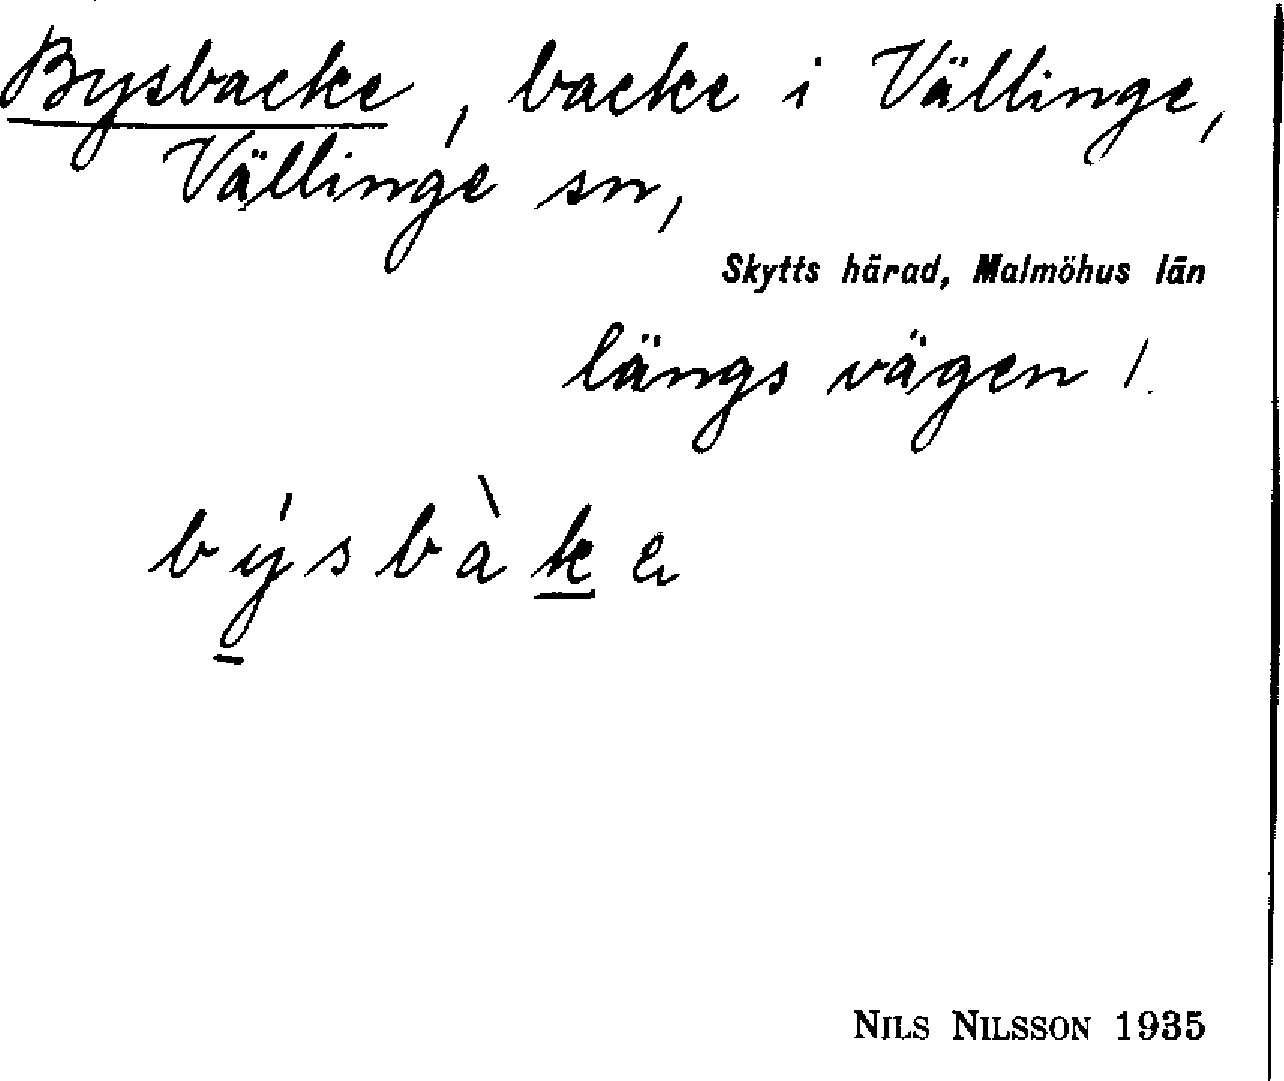 Bysbacke, backe i Vällinge,
Vällinge sn,
Skytts härad, Malmöhus län
längs vägen /.
býsbàkə
NILS NILSSON 1935